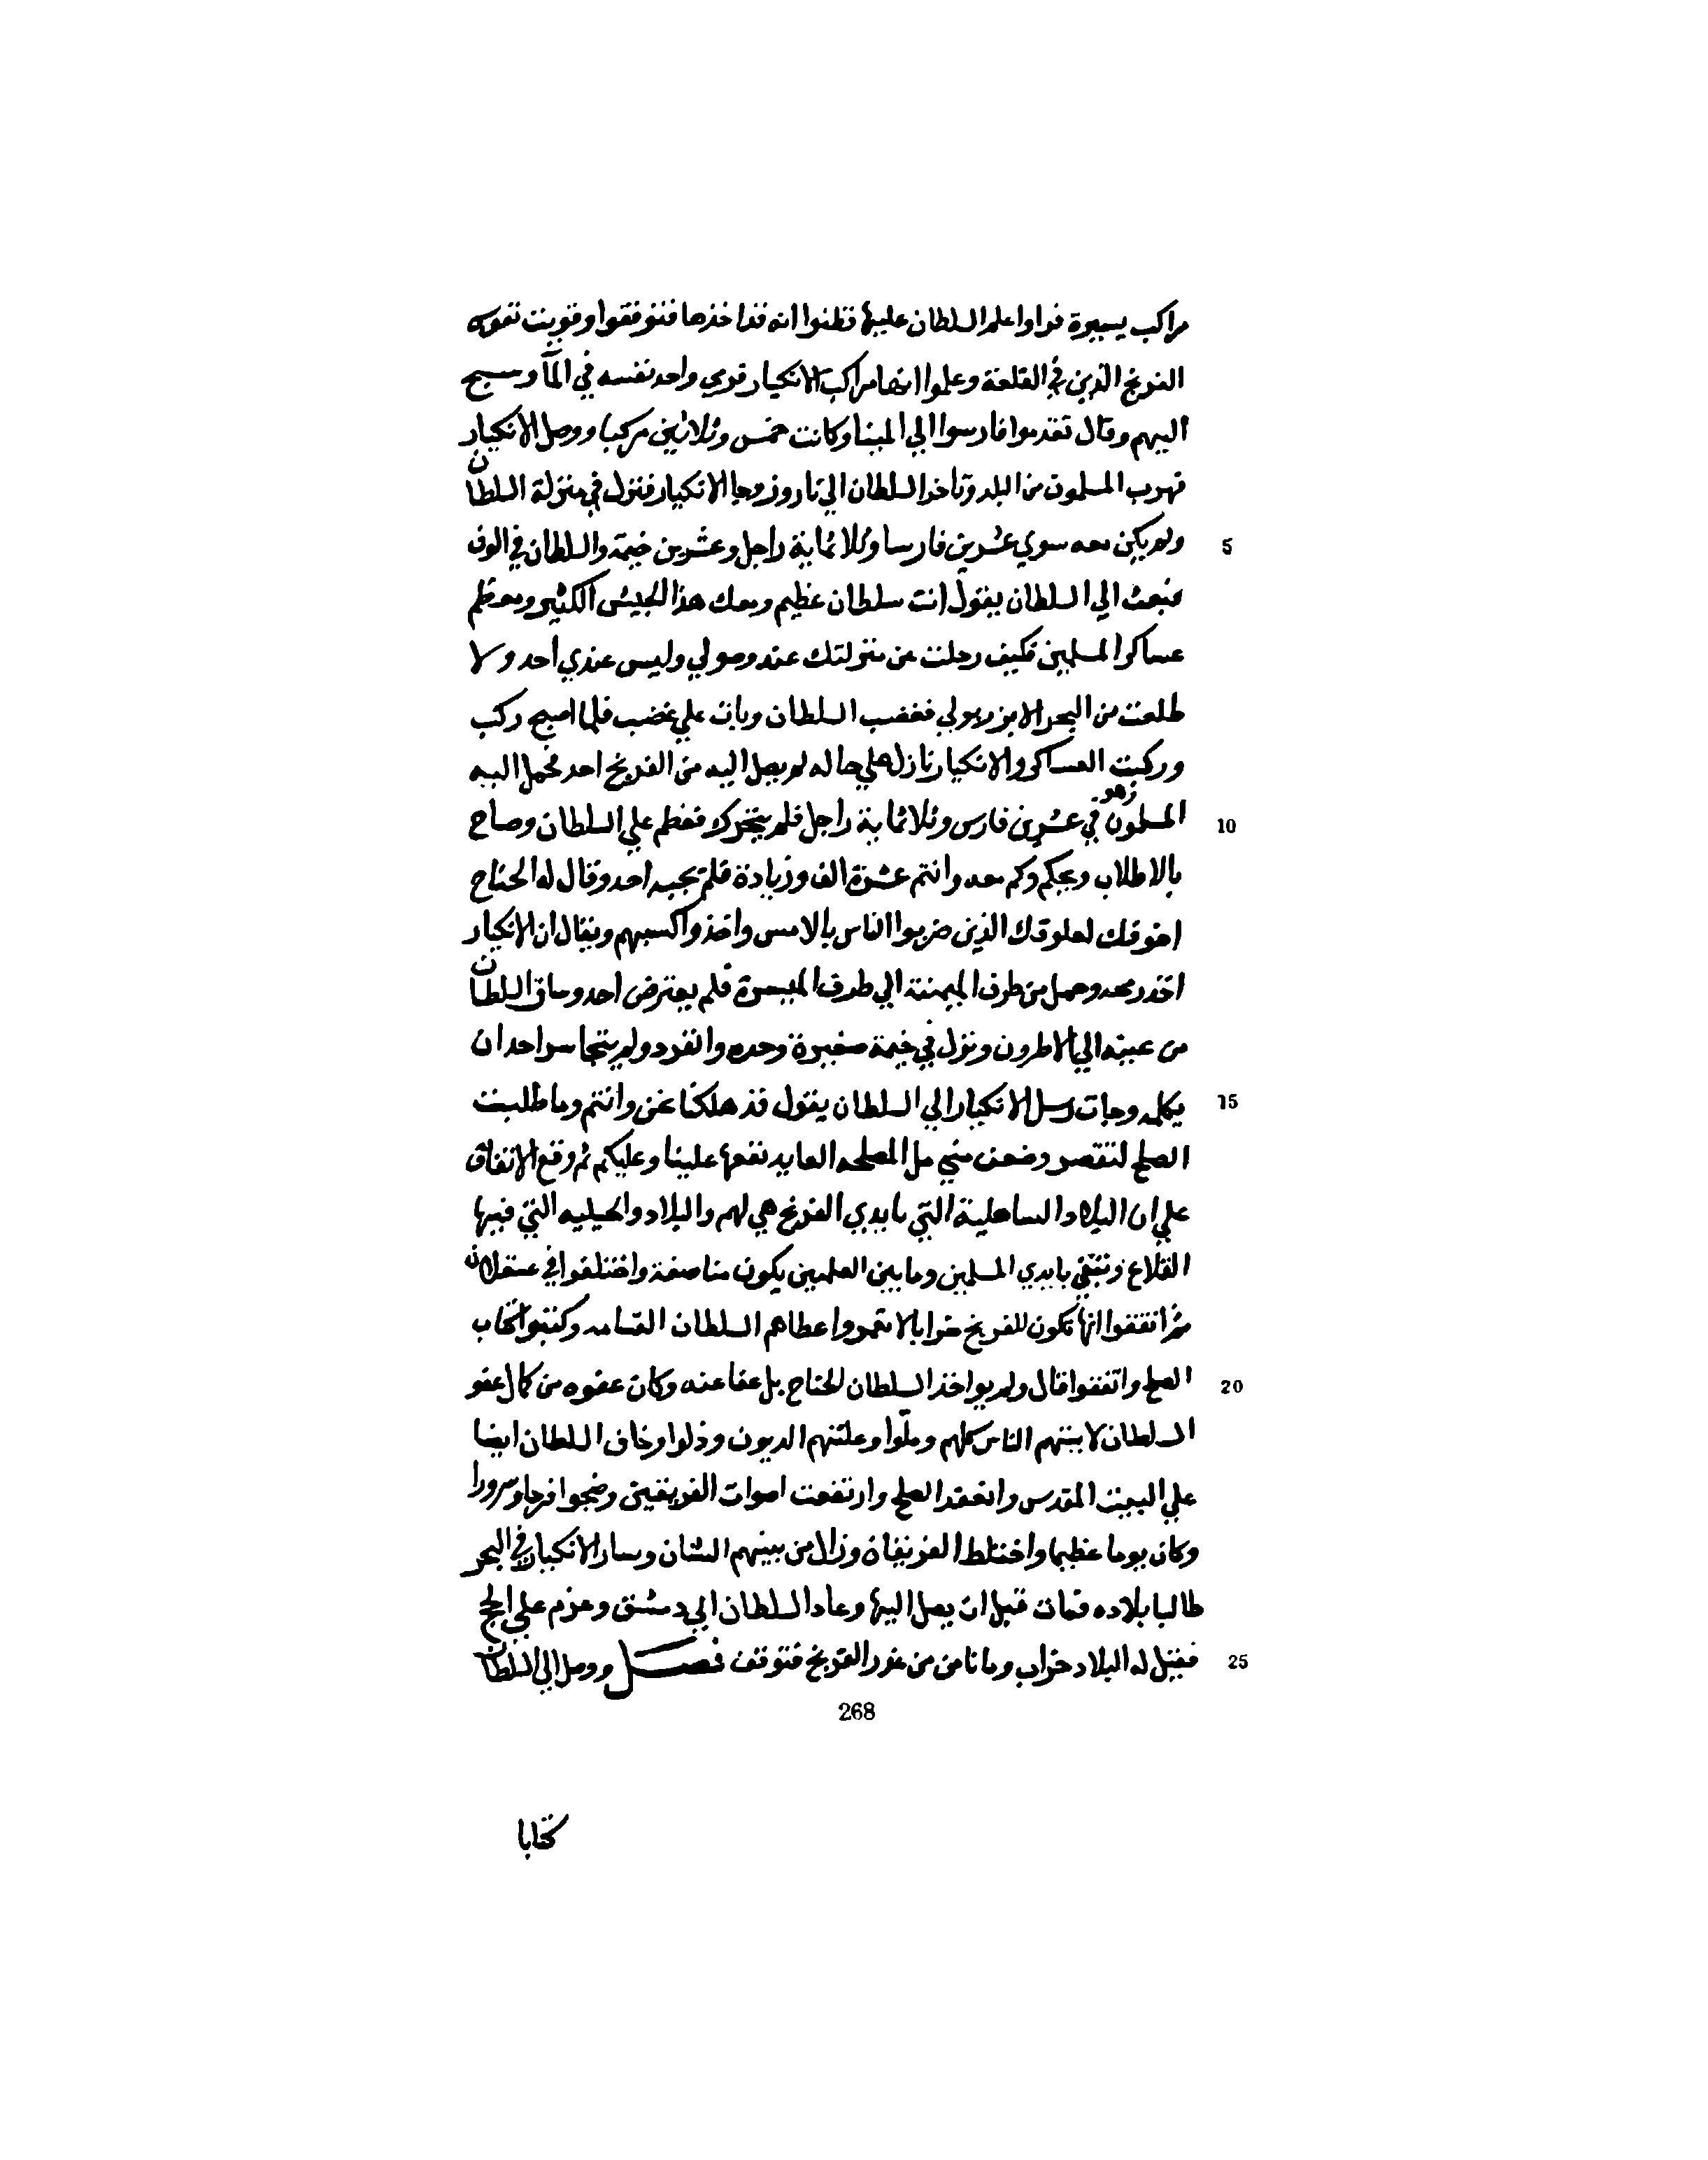 مراكب يسيرة فراوا علم السلطان عليها فظنوا انه قد اخذها فتوقفوا وقويت نفوس
الفرنج الذين في القلعة وعلموا انها مراكب الانكيار فرمي واحد نفسه في المآ وسبح
اليهم وقال تقدموا فارسوا الي المينا وكانت خمس وثلاثين مركبا ووصل الانكيار
فهرب المسلمون من البلد وتاخر السلطان الي يازور وجا الانكيار فنزل في منزلة السلطان
5 ولم يكن معه سوي عشرين فارسا وثلاثماية راجل وعشرين خيمة والسلطان في الوف
فبعث الي السلطان يقول انت سلطان عظيم ومعك هذا الجيش الكثير ومعظم
عساكر المسلمين فكيف رحلت عن منزلتك عند وصولي وليس عندي احد ولا
طلعت من البحر الا بزربولي فغضب السلطان وبات علي غضب فلما اصبح ركب
وركبت العساكر والانكيار نازل علي حاله لم يصل اليه من الفرنج احد فحمل اليه
10 المسلمون وهو في عشرين فارس وثلاثماية راجل فلم يتحرك فعظم علي السلطان وصاح
بالاطلاب ويحكم وكم معه وانتم عشرة الف وزيادة فلم يجبه احد وقال له الجناح
اخو قل لمملوقك الذين ضربوا الناس بالامس واخذوا كسبهم ويقال ان الانكيار
اخذ رمحه وحمل من طرف الميمنة الي طرف الميسرة فلم يعترض احد وساق السلطان
من عيبته الي الاطرون ونزل في خيمة صغيرة وحده وانفرد ولم يتجاسر احد ان
15 يكلمه وجات رسل الانكيار الي السلطان يقول قد هلكنا نحن وانتم وما طلبت
الصلح لتقصير وضعف مني بل المصلحه العايد نفعها علينا وعليكم ثم وقع الاتفاق
علي ان البلاد الساحلية التي بايدي الفرنج هي لهم والبلاد والجبليه التي فيها
القلاع وتبقي بايدي المسلمين وما بين العلمين يكون مناصفة واختلفوا في عسقلان
ثم اتفقوا انها تكون للفرنج خرابا لا تعمر واعطاهم السلطان القسامه وكتبوا كتاب
20 الصلح واتفقوا قال ولم يواخذ السلطان الجناح بل عفا عنه وكان عفوه من كمال عفو
السلطان لا بينهم الناس كلهم وملّوا وعلتهم الديون وذلوا وخاف السلطان ايضا
علي البيت المقدس وانعقد الصلح وارتفعت اصوات الفريقين وضجوا فرحا وسرورا
وكان يوما عظيما واختلط الفريقان وزال من بينهم الشنان وسار الانكيار في البحر
طالبا بلاده فمات قبل ان يصل اليها وعاد السلطان الي دمشق وعزم علي الحج
25 فقيل له البلاد خراب وما نامن من غدر الفرنج فتوقف فصل ووصل الي السلطان
268
كتابا